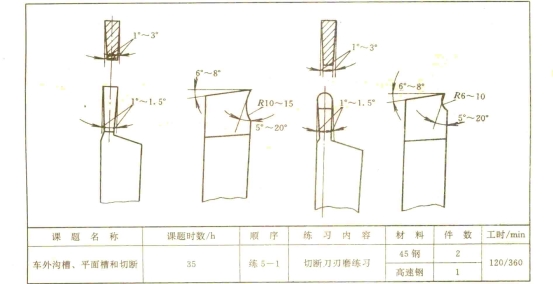 1°~3°
1°~3°
6°~8°
6°~8°
1°~1.5°
R10~15
1°~1.5°
R6~10
5°~20°
5°~20°
课 题 名 称 课题时数/h 顺 序 练 习 内 容 材 料 件 数 工时/min
车外沟槽、平面槽和切断 35 练5-1 切断刀刃磨练习 45钢 2 120/360
高速钢 1